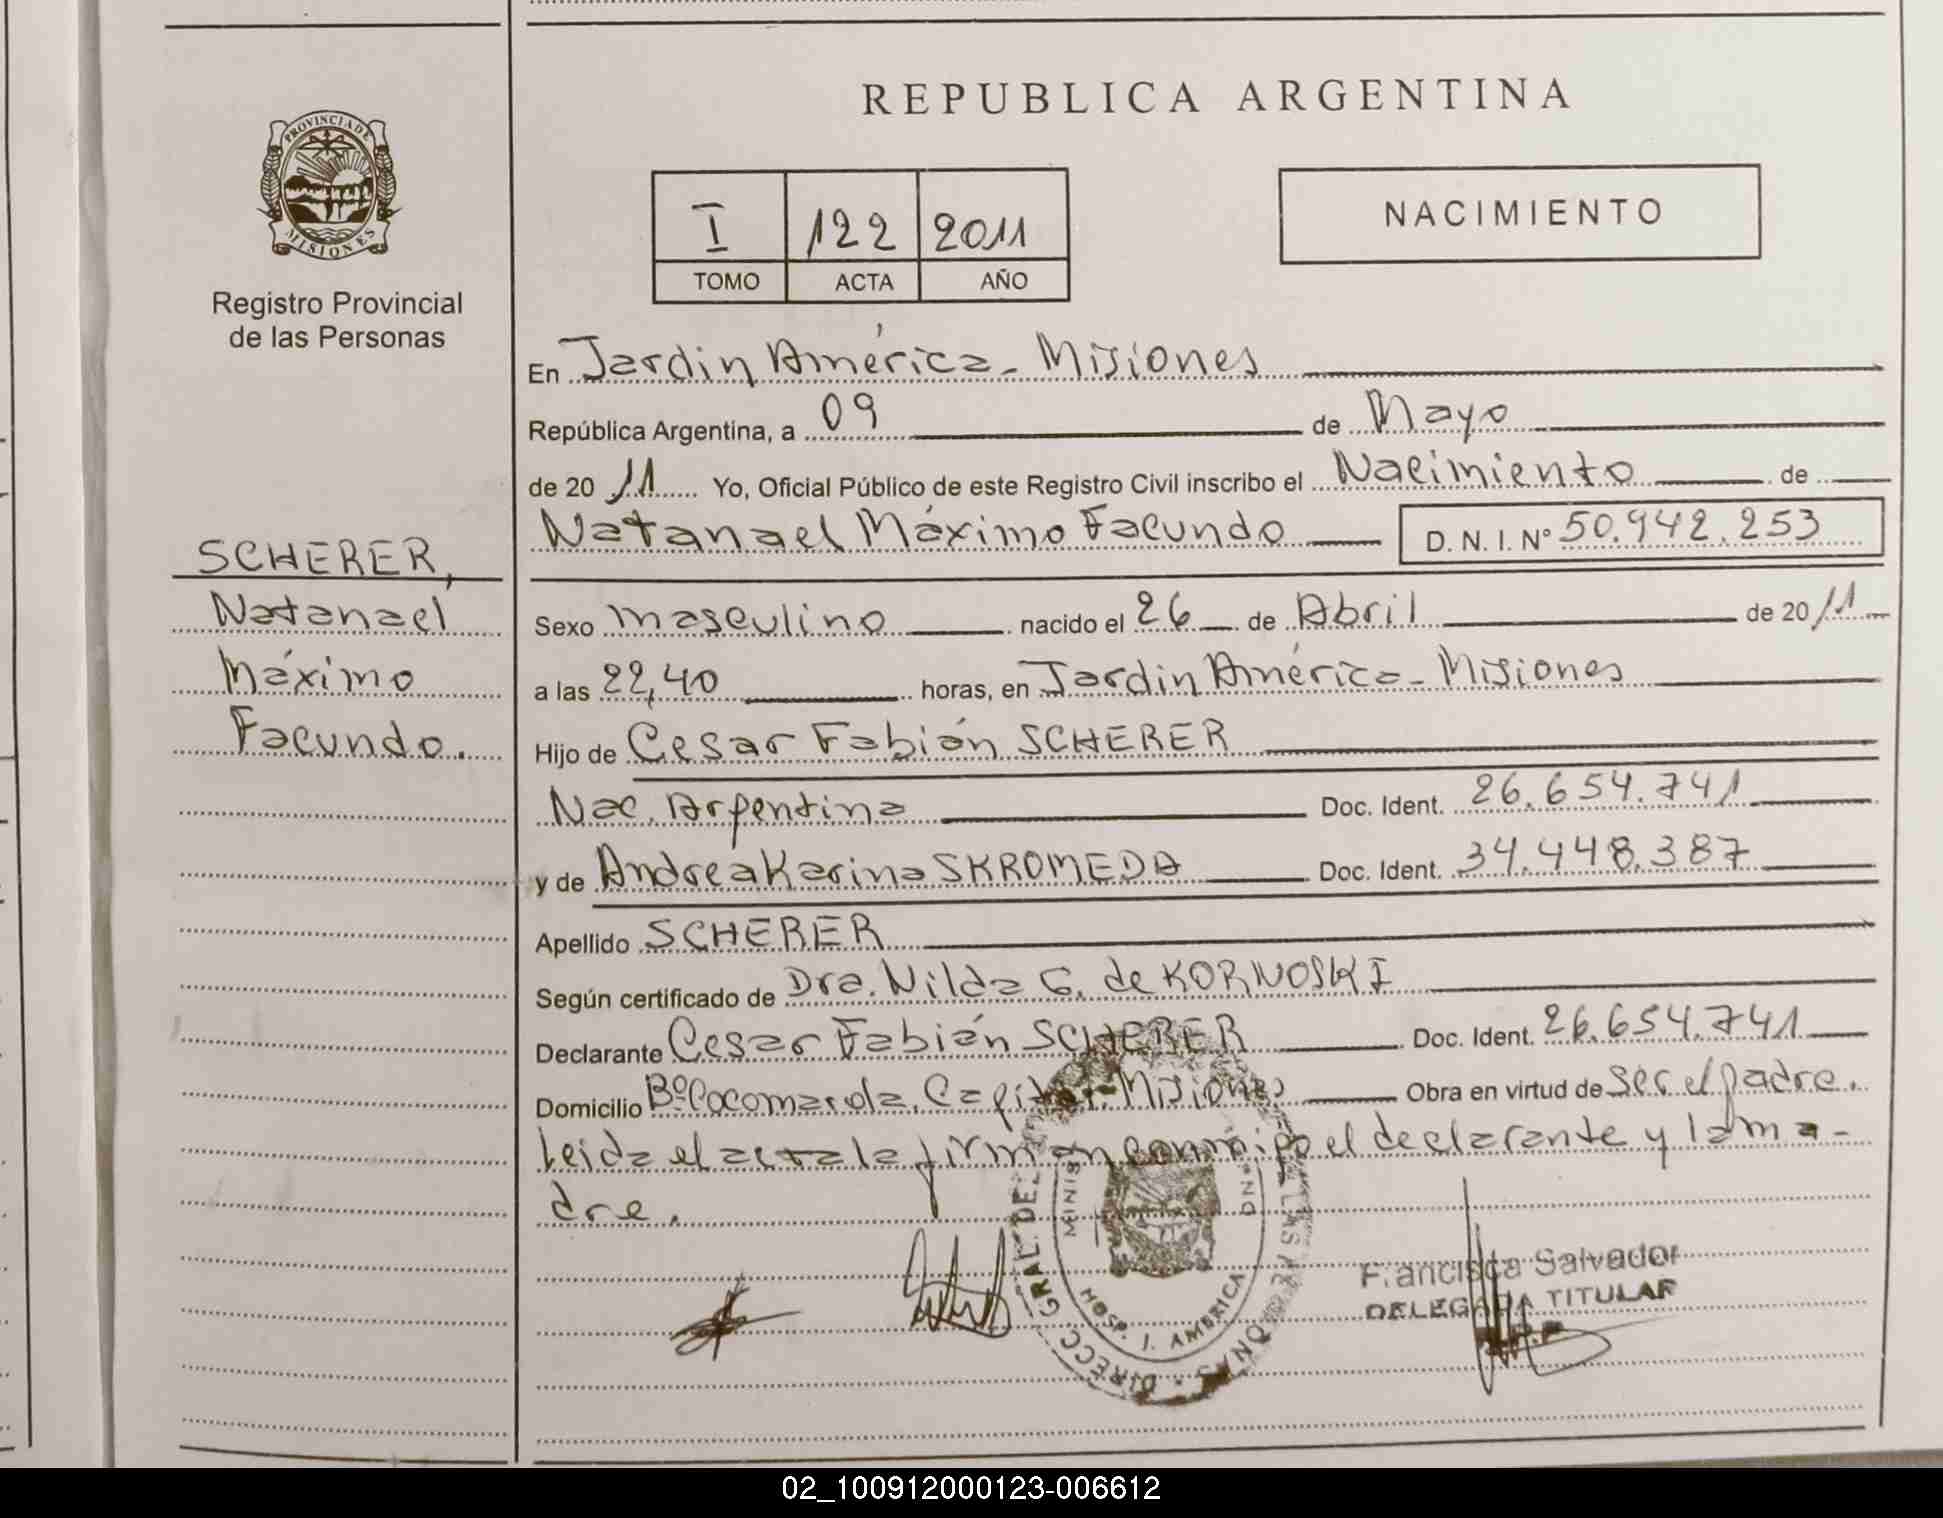 REPUBLICA ARGENTINA
PROVINCIA DE
MISIONES
Registro Provincial
de las Personas
I 122 2011
TOMO ACTA AÑO
NACIMIENTO
En Jardín América - Misiones
República Argentina, a 09 de Mayo
de 20 11 Yo, Oficial Público de este Registro Civil inscribo el Nacimiento de
Natanael Máximo Facundo D. N. I. Nº 50.942.253
SCHERER,
Natanael
Máximo
Facundo.
Sexo masculino nacido el 26 de Abril de 20 11
a las 22,40 horas, en Jardin América - Misiones
Hijo de Cesar Fabián SCHERER
Nac. Argentina Doc. Ident. 26.654.741
y de Andrea Karina SKROMEDA Doc. Ident. 34.448.387
Apellido SCHERER
Según certificado de Dra. Nilda G. de KORNOSKI
Declarante Cesar Fabián SCHERER Doc. Ident. 26.654.741
Domicilio Bº Cocomarola, Capital - Misiones Obra en virtud de ser el padre.
Leida el acta la firman conmigo el declarante y la ma-
dre.
DIRECC. GRAL. DE
HOSP. J. AMERICA
Francisca Salvador
DELEGADA TITULAR
02_100912000123-006612